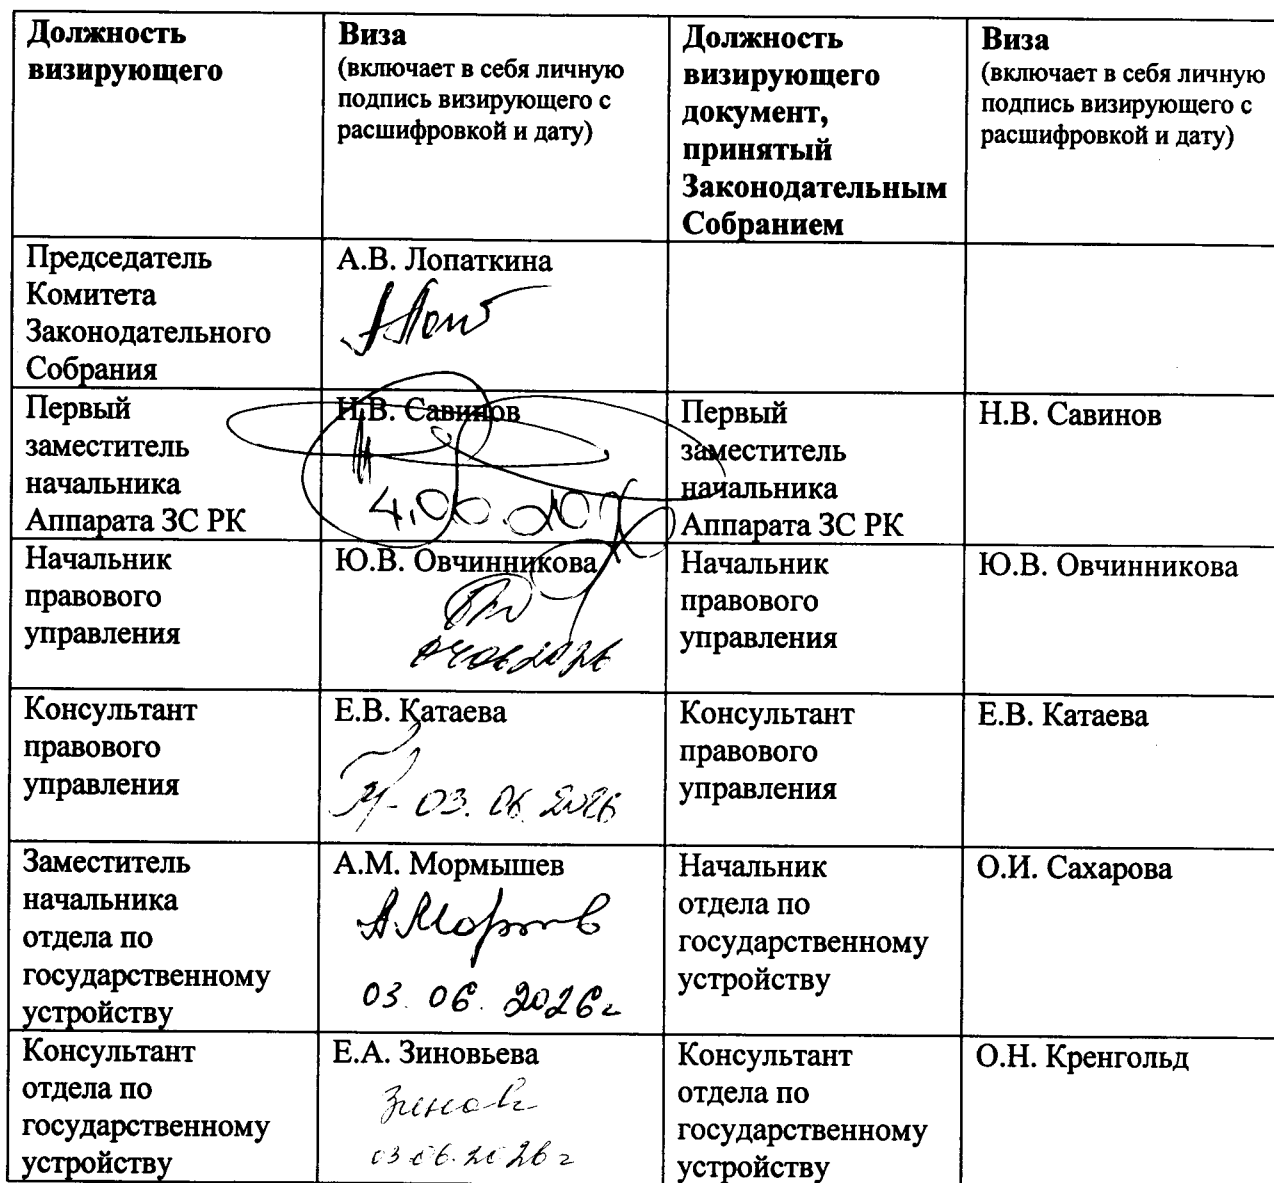 Должность
визирующего
Виза
(включает в себя личную
подпись визирующего с
расшифровкой и дату)
Должность
визирующего
документ,
принятый
Законодательным
Собранием
Виза
(включает в себя личную
подпись визирующего с
расшифровкой и дату)
Председатель
Комитета
Законодательного
Собрания
А.В. Лопаткина
Первый
заместитель
начальника
Аппарата ЗС РК
Н.В. Савинов
Первый
заместитель
начальника
Аппарата ЗС РК
Н.В. Савинов
Начальник
правового
управления
Ю.В. Овчинникова
04062026
Начальник
правового
управления
Ю.В. Овчинникова
Консультант
правового
управления
Е.В. Катаева
03.06.2026
Консультант
правового
управления
Е.В. Катаева
Заместитель
начальника
отдела по
государственному
устройству
А.М. Мормышев
03.06.2026г
Начальник
отдела по
государственному
устройству
О.И. Сахарова
Консультант
отдела по
государственному
устройству
Е.А. Зиновьева
03.06.2026г
Консультант
отдела по
государственному
устройству
О.Н. Кренгольд